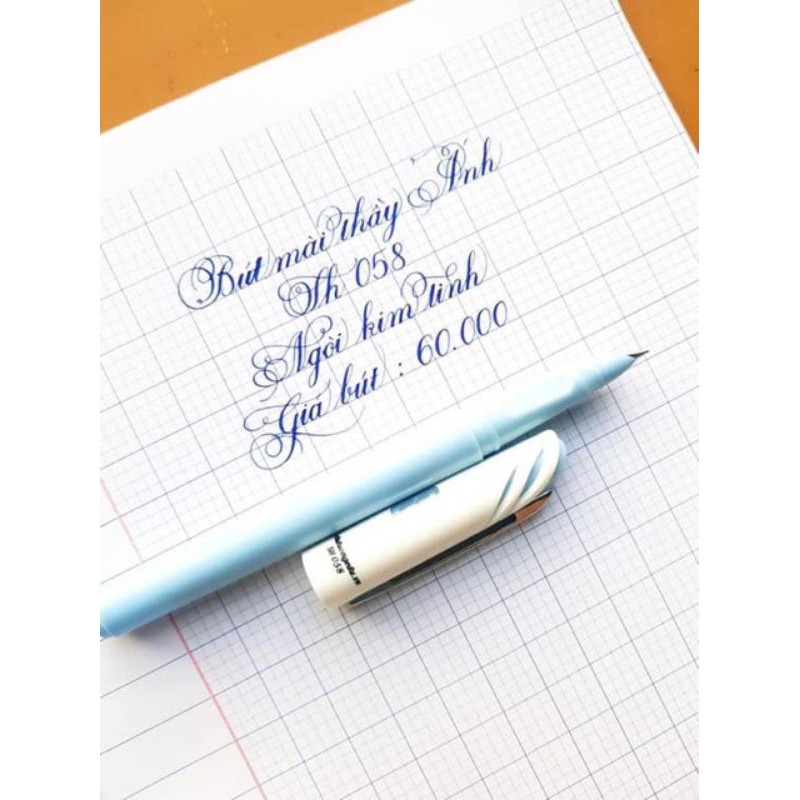 Bút mài thầy Ánh
Sh 058
Ngòi kim tinh
Giá bút : 60.000
SH 058